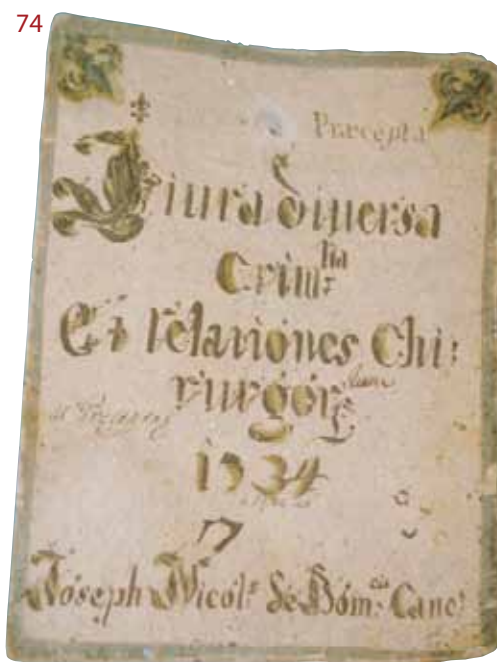 74
Præcepta
Jiura diuersa
Crim:lia
Et relationes Chi:
rurgor:
1734
7
Joseph Nicol: de Dom:cis Canc: